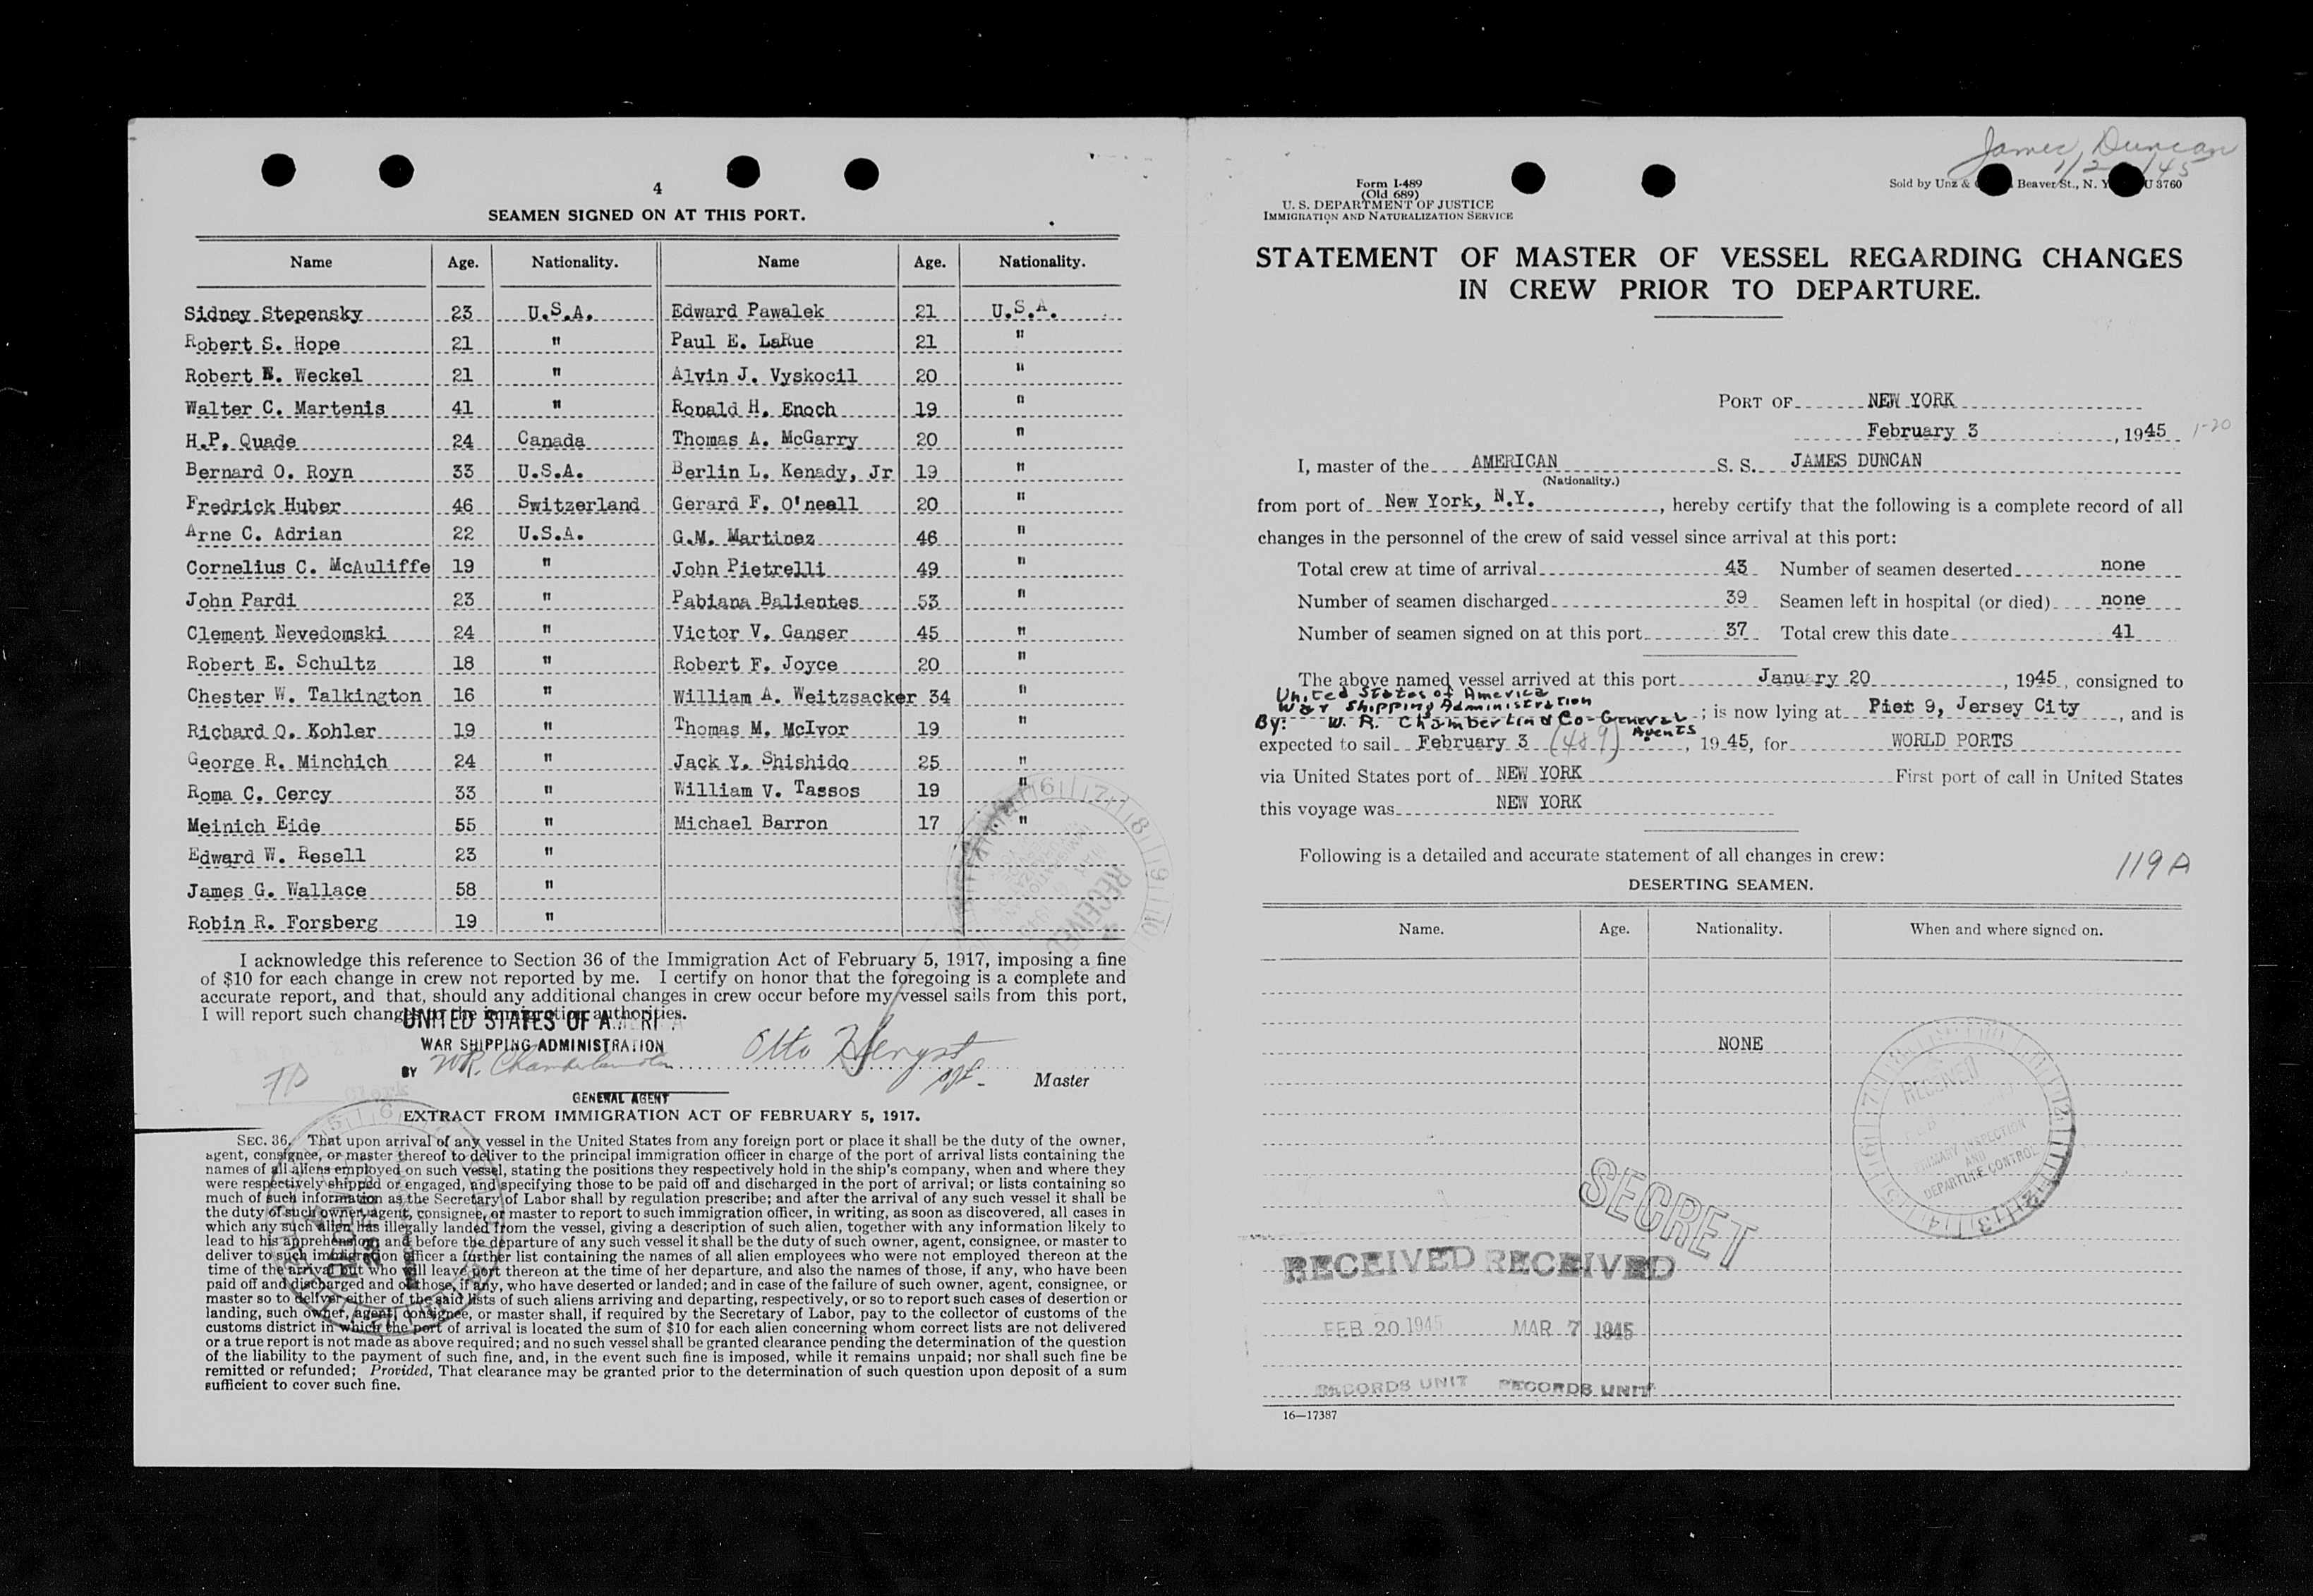 4
SEAMEN SIGNED ON AT THIS PORT.
Name Age. Nationality. Name Age. Nationality.
Sidney Stepensky 23 U.S.A. Edward Pawalek 21 U.S.A.
Robert S. Hope 21 " Paul E. LaRue 21 "
Robert E. Weckel 21 " Alvin J. Vyskocil 20 "
Walter C. Martenis 41 " Ronald H. Enoch 19 "
H.P. Quade 24 Canada Thomas A. McGarry 20 "
Bernard O. Royn 33 U.S.A. Berlin L. Kenady, Jr 19 "
Fredrick Huber 46 Switzerland Gerard F. O'neall 20 "
Arne C. Adrian 22 U.S.A. G.M. Martinez 46 "
Cornelius C. McAuliffe 19 " John Pietrelli 49 "
John Pardi 23 " Pabiana Balientes 53 "
Clement Nevedomski 24 " Victor V. Ganser 45 "
Robert E. Schultz 18 " Robert F. Joyce 20 "
Chester W. Talkington 16 " William A. Weitzsacker 34 "
Richard O. Kohler 19 " Thomas M. McIvor 19 "
George R. Minchich 24 " Jack Y. Shishido 25 "
Roma C. Cercy 33 " William V. Tassos 19 "
Meinich Eide 55 " Michael Barron 17 "
Edward W. Resell 23 "
James G. Wallace 58 "
Robin R. Forsberg 19 "
RECEIVED
I acknowledge this reference to Section 36 of the Immigration Act of February 5, 1917, imposing a fine
of $10 for each change in crew not reported by me. I certify on honor that the foregoing is a complete and
accurate report, and that, should any additional changes in crew occur before my vessel sails from this port,
I will report such changes to the immigration authorities.
UNITED STATES OF AMERICA
WAR SHIPPING ADMINISTRATION
BY W.R. Chamberlin Otto Hengst
Master
GENERAL AGENT
EXTRACT FROM IMMIGRATION ACT OF FEBRUARY 5, 1917.
SEC. 36. That upon arrival of any vessel in the United States from any foreign port or place it shall be the duty of the owner,
agent, consignee, or master thereof to deliver to the principal immigration officer in charge of the port of arrival lists containing the
names of all aliens employed on such vessel, stating the positions they respectively hold in the ship's company, when and where they
were respectively shipped or engaged, and specifying those to be paid off and discharged in the port of arrival; or lists containing so
much of such information as the Secretary of Labor shall by regulation prescribe; and after the arrival of any such vessel it shall be
the duty of such owner, agent, consignee, or master to report to such immigration officer, in writing, as soon as discovered, all cases in
which any such alien has illegally landed from the vessel, giving a description of such alien, together with any information likely to
lead to his apprehension; and before the departure of any such vessel it shall be the duty of such owner, agent, consignee, or master to
deliver to such immigration officer a further list containing the names of all alien employees who were not employed thereon at the
time of the arrival but who will leave port thereon at the time of her departure, and also the names of those, if any, who have been
paid off and discharged and of those, if any, who have deserted or landed; and in case of the failure of such owner, agent, consignee, or
master so to deliver either of the said lists of such aliens arriving and departing, respectively, or so to report such cases of desertion or
landing, such owner, agent, consignee, or master shall, if required by the Secretary of Labor, pay to the collector of customs of the
customs district in which the port of arrival is located the sum of $10 for each alien concerning whom correct lists are not delivered
or a true report is not made as above required; and no such vessel shall be granted clearance pending the determination of the question
of the liability to the payment of such fine, and, in the event such fine is imposed, while it remains unpaid; nor shall such fine be
remitted or refunded; Provided, That clearance may be granted prior to the determination of such question upon deposit of a sum
sufficient to cover such fine.
James Duncan
Form I-489
(Old 689)
U. S. DEPARTMENT OF JUSTICE
IMMIGRATION AND NATURALIZATION SERVICE
Sold by Unz & Beaver St., N. Y. U 3760
STATEMENT OF MASTER OF VESSEL REGARDING CHANGES
IN CREW PRIOR TO DEPARTURE.
PORT OF NEW YORK
February 3, 1945 1-20
I, master of the AMERICAN S. S. JAMES DUNCAN
(Nationality.)
from port of New York, N.Y., hereby certify that the following is a complete record of all
changes in the personnel of the crew of said vessel since arrival at this port:
Total crew at time of arrival 43 Number of seamen deserted none
Number of seamen discharged 39 Seamen left in hospital (or died) none
Number of seamen signed on at this port 37 Total crew this date 41
The above named vessel arrived at this port January 20, 1945, consigned to
United States of America
War Shipping Administration
By: W. R. Chamberlin & Co-General Agents; is now lying at Pier 9, Jersey City, and is
expected to sail February 3 (489), 1945, for WORLD PORTS
via United States port of NEW YORK First port of call in United States
this voyage was NEW YORK
Following is a detailed and accurate statement of all changes in crew:
119A
DESERTING SEAMEN.
Name. Age. Nationality. When and where signed on.
NONE
RECEIVED
PRIMARY INSPECTION
AND
DEPARTURE CONTROL
SECRET
RECEIVED RECEIVED
FEB 20 1945 MAR 7 1945
RECORDS UNIT RECORDS UNIT
16—17387